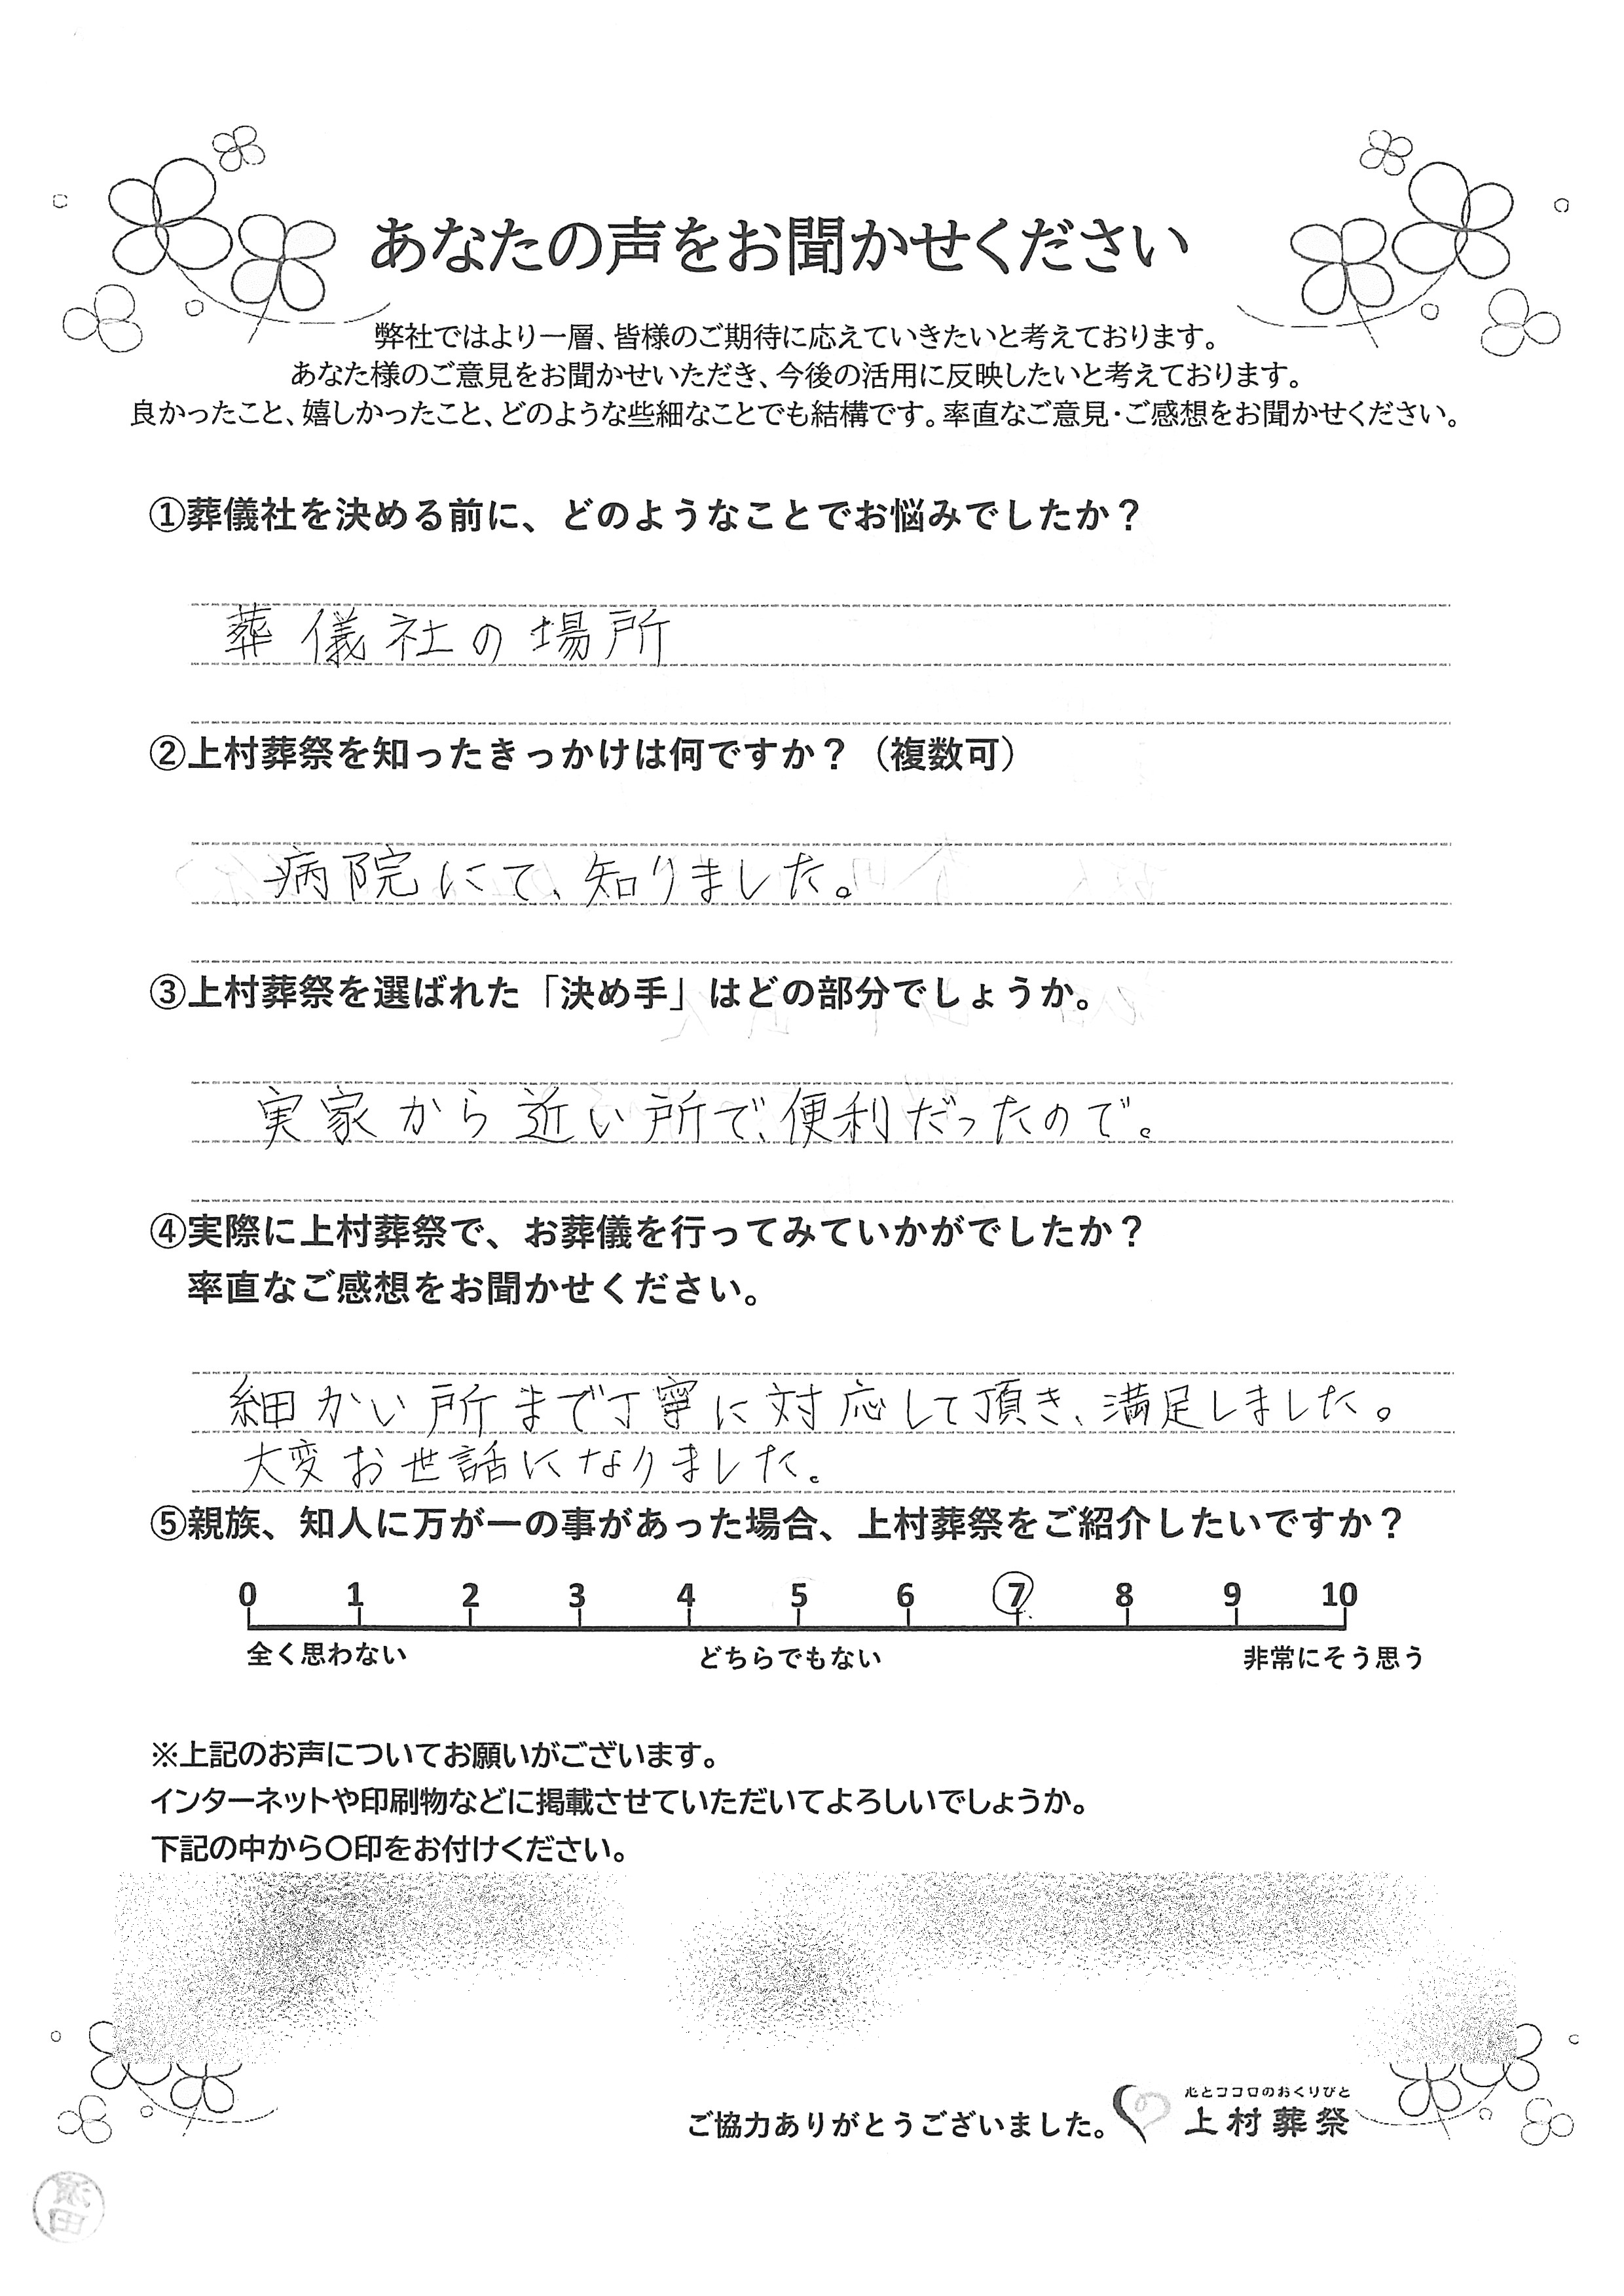 あなたの声をお聞かせください
弊社ではより一層、皆様のご期待に応えていきたいと考えております。
あなた様のご意見をお聞かせいただき、今後の活用に反映したいと考えております。
良かったこと、嬉しかったこと、どのような些細なことでも結構です。率直なご意見・ご感想をお聞かせください。
①葬儀社を決める前に、どのようなことでお悩みでしたか？
葬儀社の場所
②上村葬祭を知ったきっかけは何ですか？（複数可）
病院にて、知りました。
③上村葬祭を選ばれた「決め手」はどの部分でしょうか。
実家から近い所で、便利だったので。
④実際に上村葬祭で、お葬儀を行ってみていかがでしたか？
率直なご感想をお聞かせください。
細かい所まで丁寧に対応して頂き、満足しました。
大変お世話になりました。
⑤親族、知人に万が一の事があった場合、上村葬祭をご紹介したいですか？
0 1 2 3 4 5 6 7 8 9 10
全く思わない どちらでもない 非常にそう思う
※上記のお声についてお願いがございます。
インターネットや印刷物などに掲載させていただいてよろしいでしょうか。
下記の中から〇印をお付けください。
心とココロのおくりびと
ご協力ありがとうございました。 上村葬祭